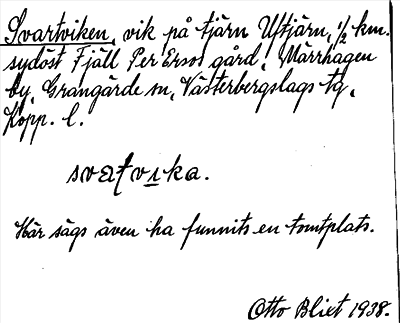 Svartviken, vik på tjärn Uftjärn, 1/2 km.
sydöst Fjäll Per Ersos gård, Märrhagen
by, Grangärde sn, Västerbergslags tg,
Kopp. l.
svatvıka.
Här sägs även ha funnits en tomtplats.
Otto Blixt 1938.